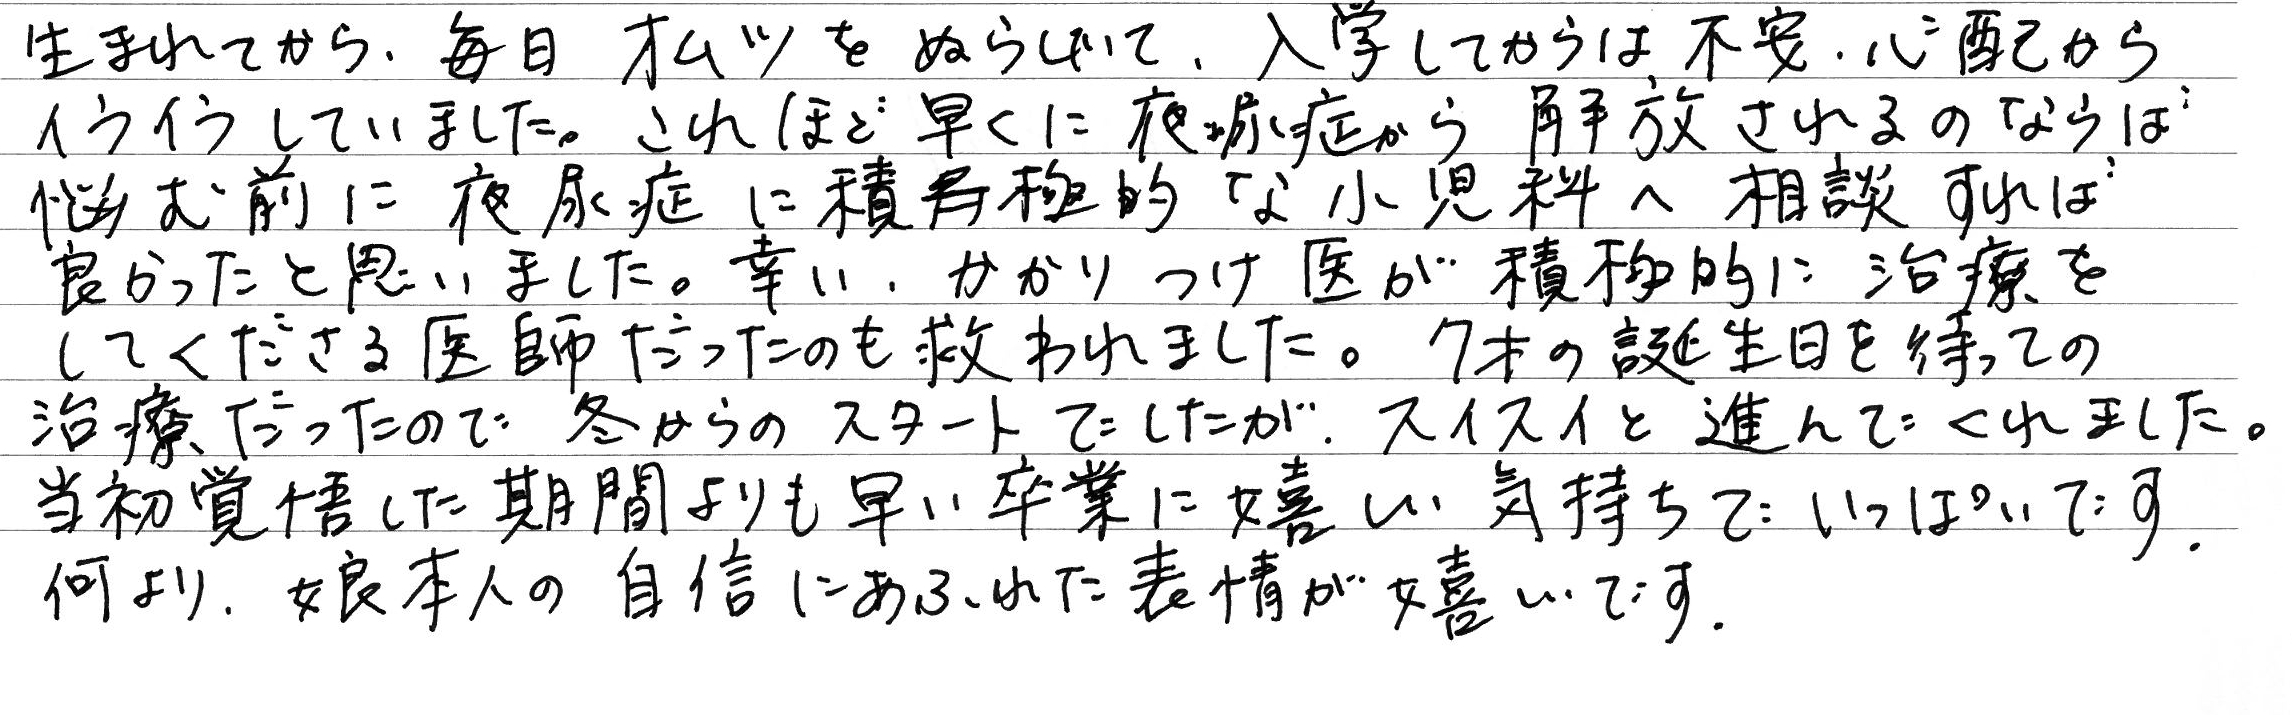 生まれてから、毎日 オムツを ぬらしていて、入学してからは 不安・心配から
イライラしていました。これほど早くに 夜尿症から 解放されるのならば
悩む前に 夜尿症に積極的な小児科へ 相談すれば
良かったと思いました。幸い、かかりつけ医が 積極的に 治療を
してくださる医師だったのも救われました。7才の誕生日を待っての
治療だったので 冬からの スタートでしたが、スイスイと 進んでくれました。
当初覚悟した期間よりも早い卒業に嬉しい気持ちでいっぱいです.
何より、娘本人の 自信にあふれた表情が嬉しいです.